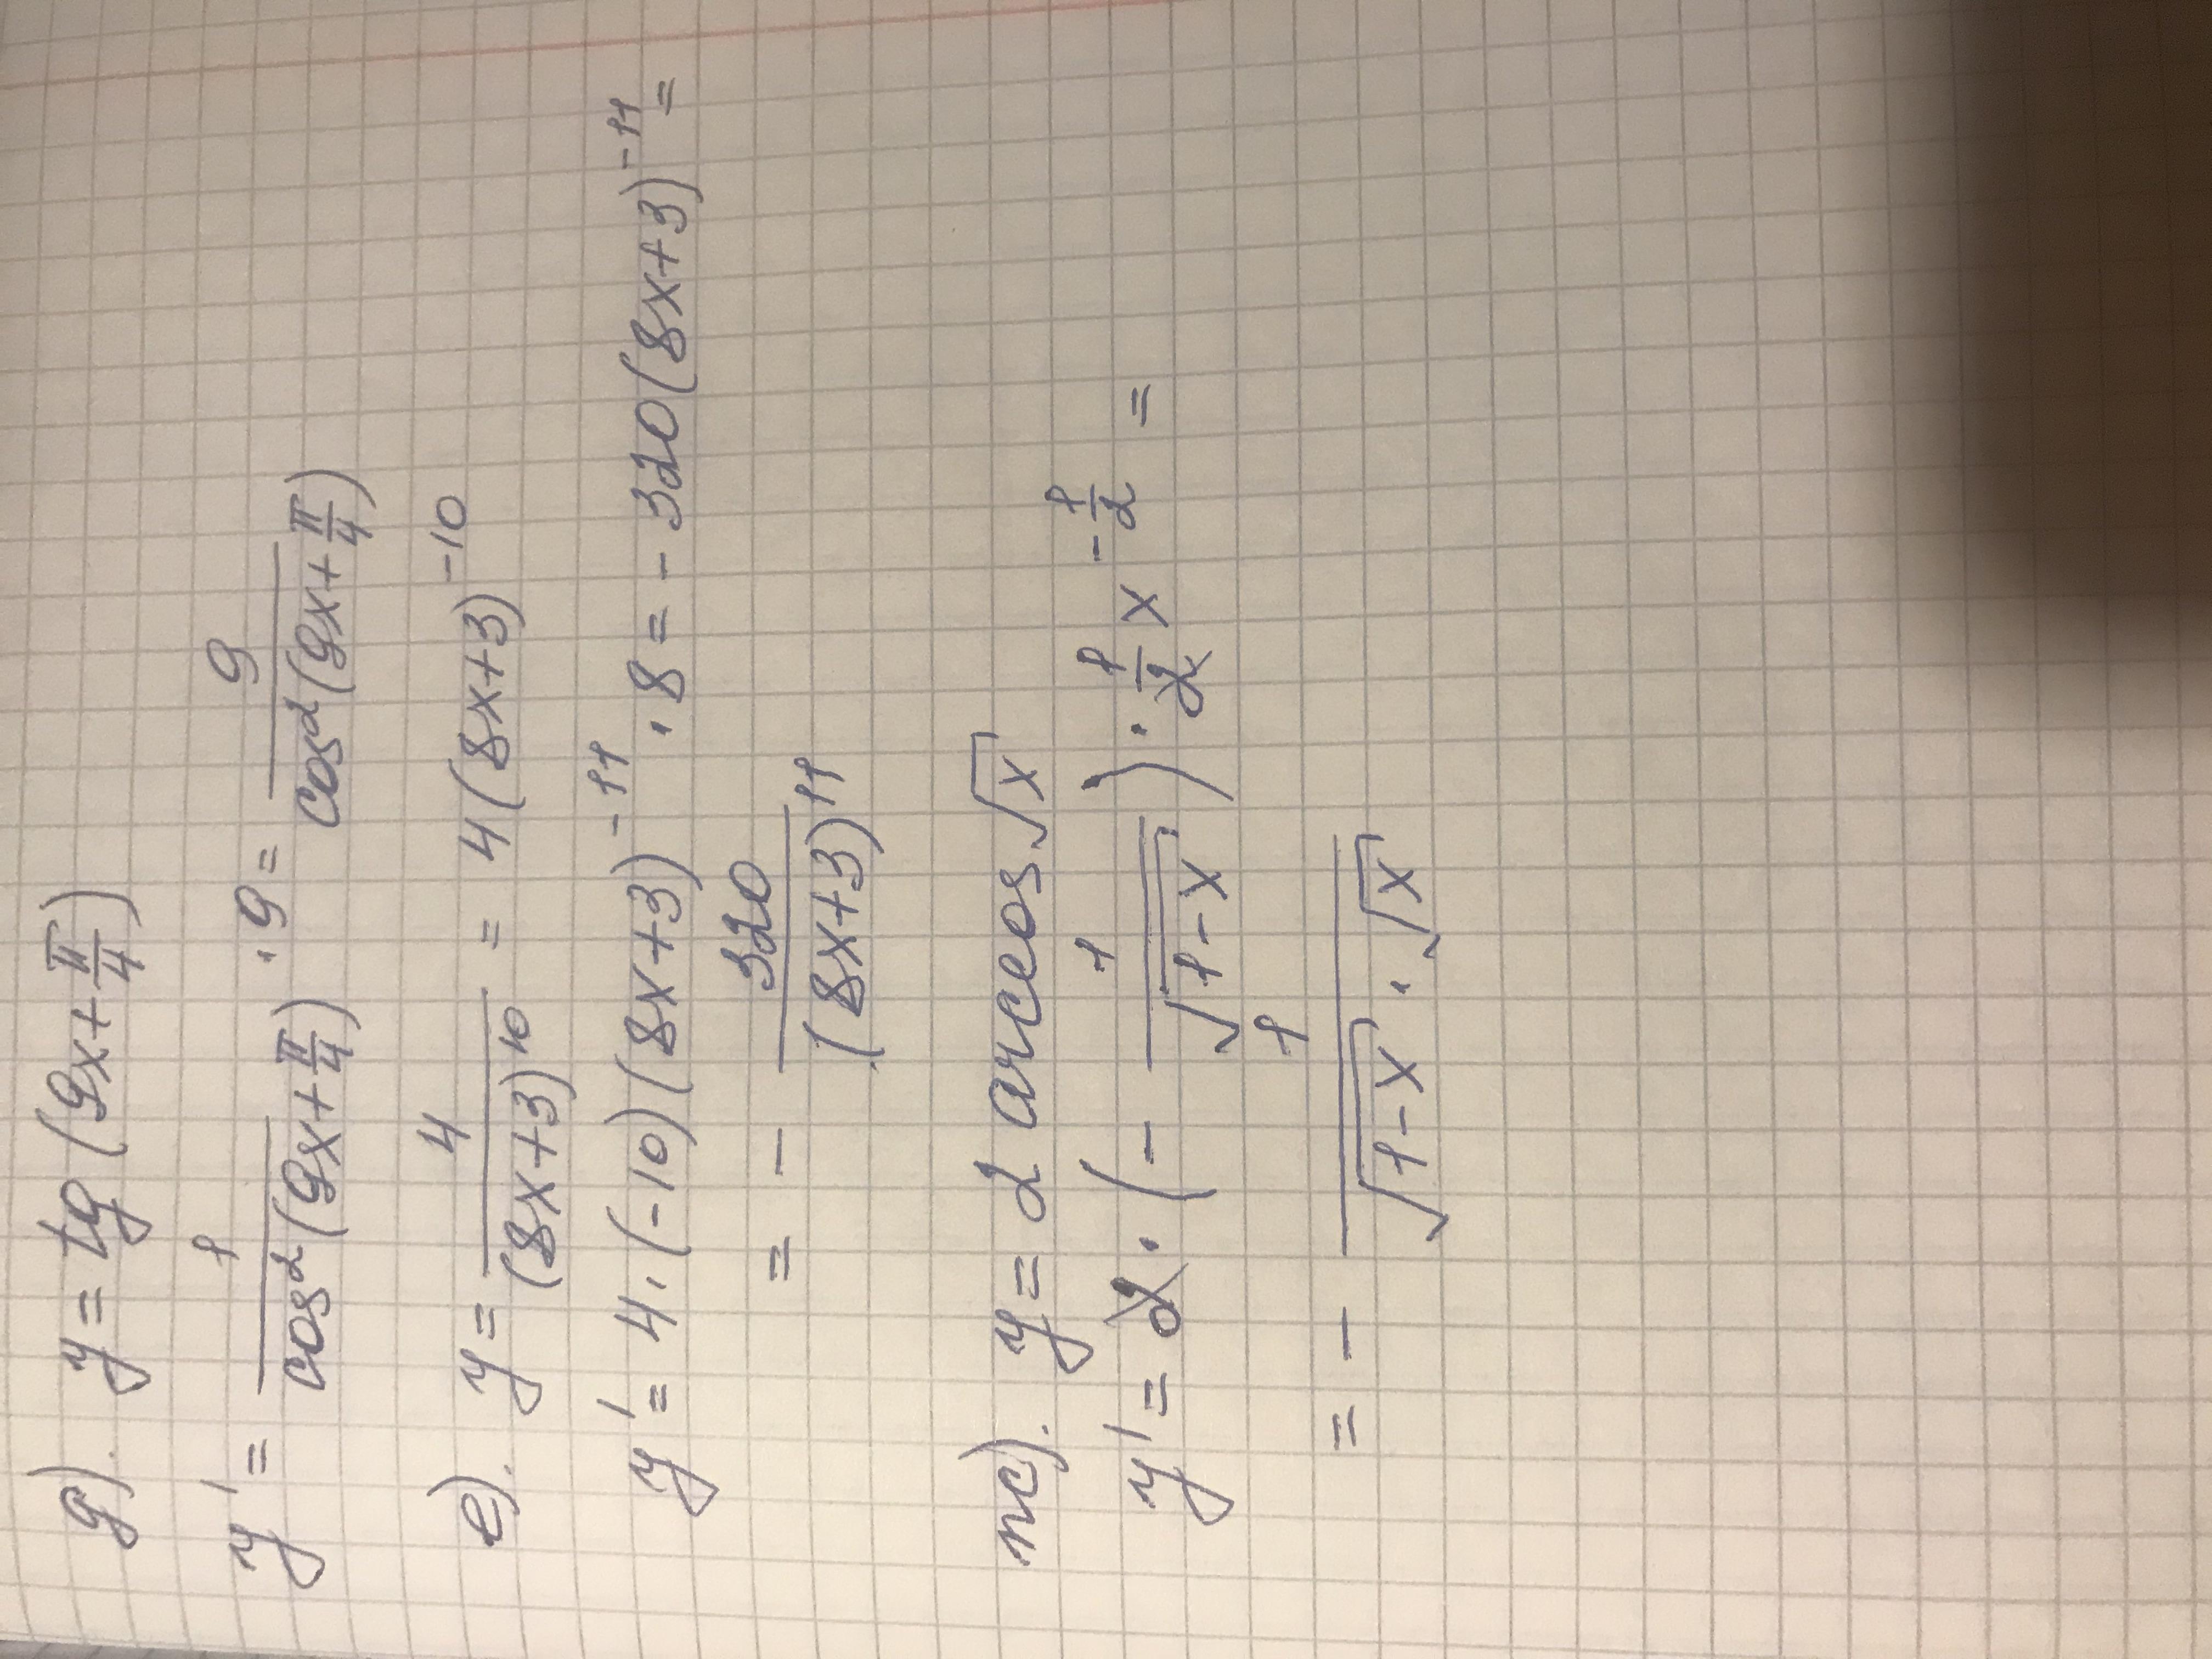 д). y = tg(9x+π/4)
y' = 1/cos²(9x+π/4) · 9 = 9/cos²(9x+π/4)
е). y = 4/(8x+3)¹⁰ = 4(8x+3)⁻¹⁰
y' = 4·(-10)(8x+3)⁻¹¹ · 8 = -320(8x+3)⁻¹¹ =
= - 320/(8x+3)¹¹
ж). y = 2 arccos√x
y' = 2 · (- 1/√(1-x)) · 1/2 x^(-1/2) =
= - 1/(√(1-x) · √x)